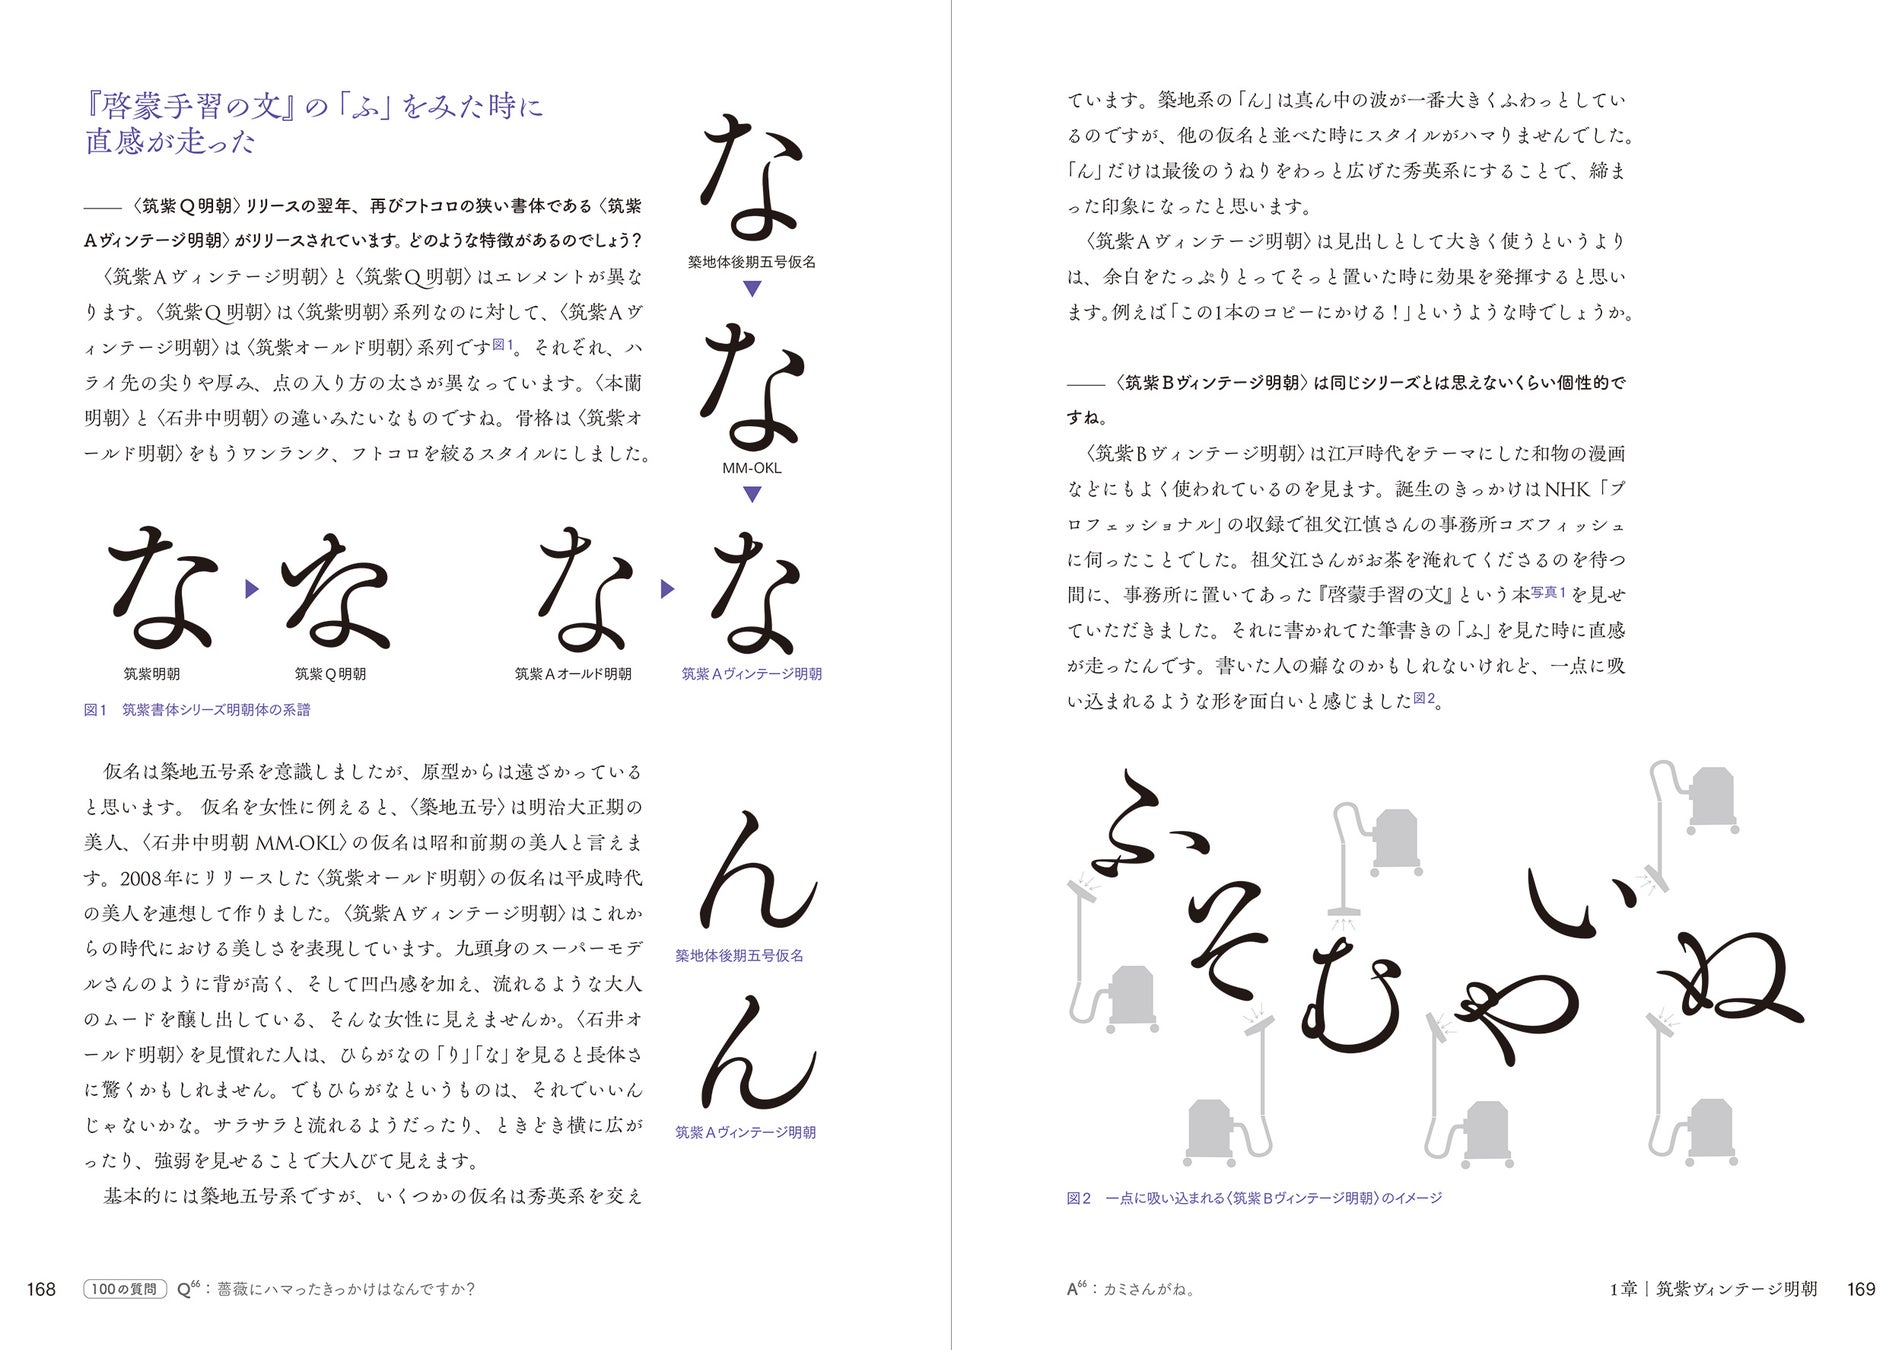 『啓蒙手習の文』の「ふ」をみた時に
直感が走った
―― 〈筑紫Q明朝〉リリースの翌年、再びフトコロの狭い書体である〈筑紫
Aヴィンテージ明朝〉がリリースされています。どのような特徴があるのでしょう?
〈筑紫Aヴィンテージ明朝〉と〈筑紫Q明朝〉はエレメントが異な
ります。〈筑紫Q明朝〉は〈筑紫明朝〉系列なのに対して、〈筑紫Aヴ
ィンテージ明朝〉は〈筑紫オールド明朝〉系列です図1。それぞれ、ハ
ライ先の尖りや厚み、点の入り方の太さが異なっています。〈本蘭
明朝〉と〈石井中明朝〉の違いみたいなものですね。骨格は〈筑紫オ
ールド明朝〉をもうワンランク、フトコロを絞るスタイルにしました。
な
築地体後期五号仮名
な
MM-OKL
な
筑紫明朝
な
筑紫Q明朝
な
筑紫Aオールド明朝
な
筑紫Aヴィンテージ明朝
図1 筑紫書体シリーズ明朝体の系譜
仮名は築地五号系を意識しましたが、原型からは遠ざかっている
と思います。 仮名を女性に例えると、〈築地五号〉は明治大正期の
美人、〈石井中明朝 MM-OKL〉の仮名は昭和前期の美人と言えま
す。2008年にリリースした〈筑紫オールド明朝〉の仮名は平成時代
の美人を連想して作りました。〈筑紫Aヴィンテージ明朝〉はこれか
らの時代における美しさを表現しています。九頭身のスーパーモデ
ルさんのように背が高く、そして凹凸感を加え、流れるような大人
のムードを醸し出している、そんな女性に見えませんか。〈石井オ
ールド明朝〉を見慣れた人は、ひらがなの「り」「な」を見ると長体さ
に驚くかもしれません。でもひらがなというものは、それでいいん
じゃないかな。サラサラと流れるようだったり、ときどき横に広が
ったり、強弱を見せることで大人びて見えます。
基本的には築地五号系ですが、いくつかの仮名は秀英系を交え
ん
築地体後期五号仮名
ん
筑紫Aヴィンテージ明朝
168 100の質問 Q66：薔薇にハマったきっかけはなんですか?
ています。築地系の「ん」は真ん中の波が一番大きくふわっとしてい
るのですが、他の仮名と並べた時にスタイルがハマりませんでした。
「ん」だけは最後のうねりをわっと広げた秀英系にすることで、締ま
った印象になったと思います。
〈筑紫Aヴィンテージ明朝〉は見出しとして大きく使うというより
は、余白をたっぷりとってそっと置いた時に効果を発揮すると思い
ます。例えば「この1本のコピーにかける！」というような時でしょうか。
―― 〈筑紫Bヴィンテージ明朝〉は同じシリーズとは思えないくらい個性的で
すね。
〈筑紫Bヴィンテージ明朝〉は江戸時代をテーマにした和物の漫画
などにもよく使われているのを見ます。誕生のきっかけはNHK「プ
ロフェッショナル」の収録で祖父江慎さんの事務所コズフィッシュ
に伺ったことでした。祖父江さんがお茶を淹れてくださるのを待つ
間に、事務所に置いてあった『啓蒙手習の文』という本写真1を見せ
ていただきました。それに書かれてた筆書きの「ふ」を見た時に直感
が走ったんです。書いた人の癖なのかもしれないけれど、一点に吸
い込まれるような形を面白いと感じました図2。
ふ
そ
む
や
い
ぬ
図2 一点に吸い込まれる〈筑紫Bヴィンテージ明朝〉のイメージ
A66：カミさんがね。
1章｜筑紫ヴィンテージ明朝 169